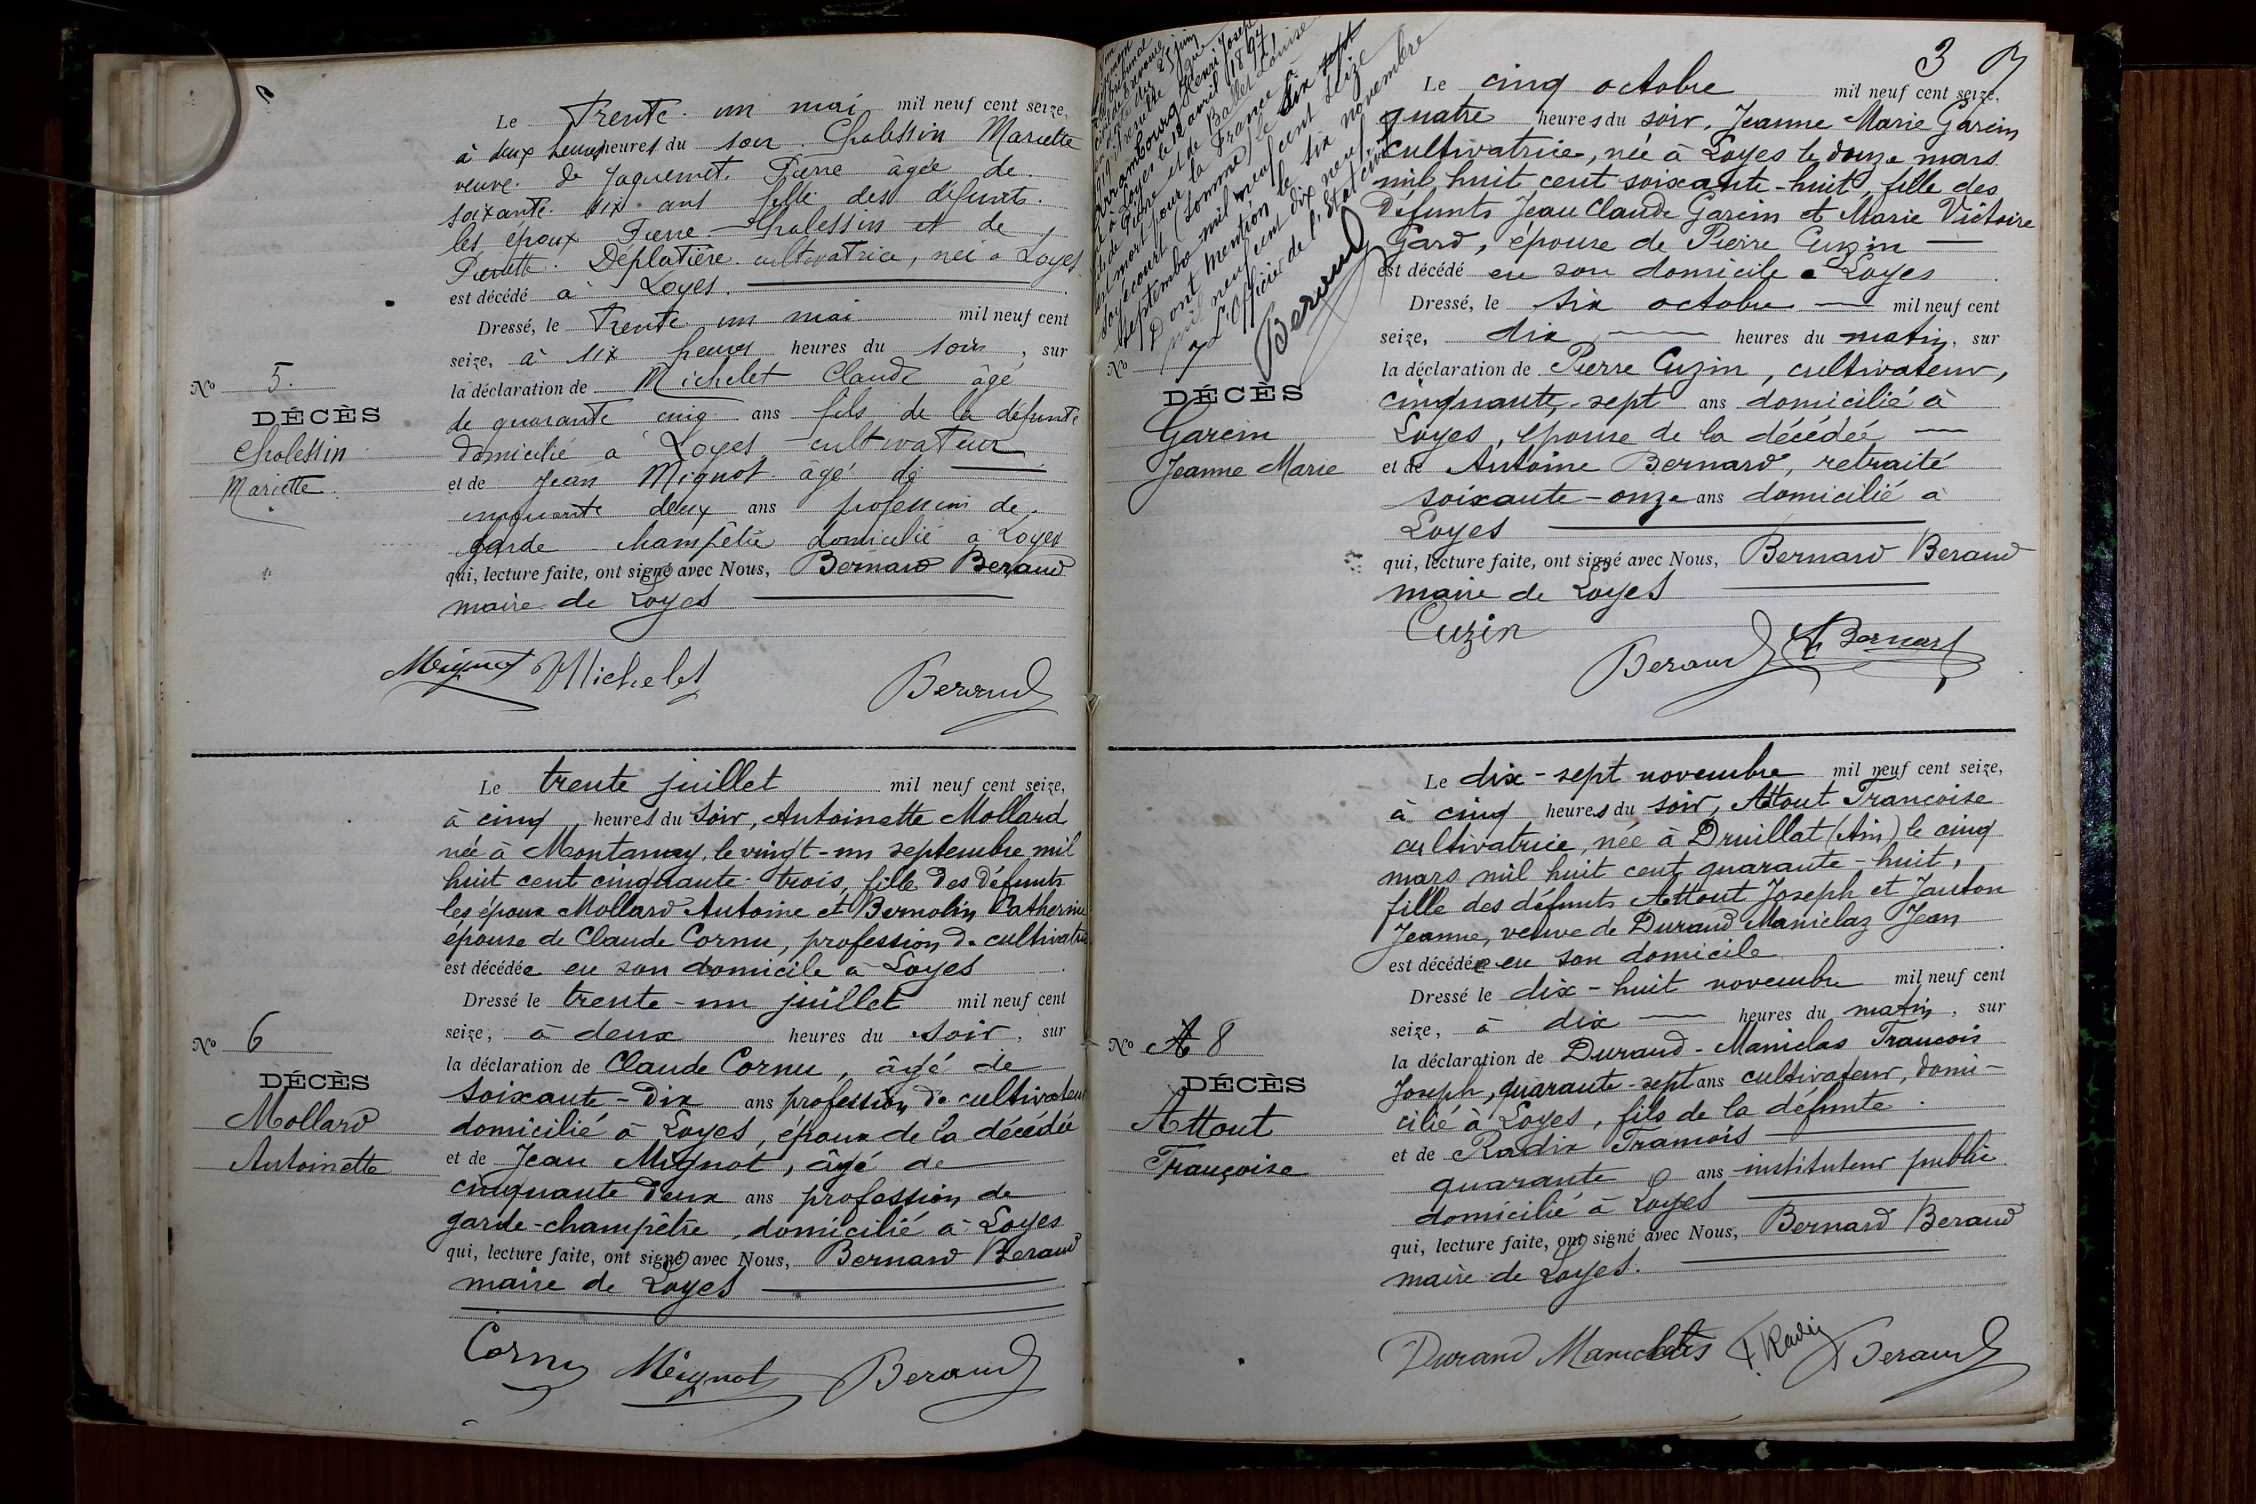 Le Trente un mai mil neuf cent seize,
à deux heures heures du soir Chalessin Mariette
veuve de Jaquemet Pierre âgée de
soixante six ans fille des défunts
les époux Pierre Chalessin et de
Pierrette Déplatière cultivatrice, née à Loyes
est décédé à Loyes.
Dressé, le Trente un mai mil neuf cent
seize, à six heures heures du soir, sur
la déclaration de Michelet Claude âgé
de quarante cinq ans fils de la défunte
domicilié à Loyes cultivateur
et de Jean Mignot âgé de
cinquante deux ans profession de
garde champêtre domicilié à Loyes
qui, lecture faite, ont signé avec Nous, Bernard Beraud
maire de Loyes
Mignot Michelet Beraud
No 5.
DÉCÈS
Chalessin
Mariette
Le trente juillet mil neuf cent seize,
à cinq heures du soir, Antoinette Mollard
née à Montanay, le vingt-un septembre mil
huit cent cinquante-trois, fille des défunts
les époux Mollard Antoine et Bernolin Catherine
épouse de Claude Cornu, profession de cultivatrice
est décédée en son domicile à Loyes
Dressé le trente-un juillet mil neuf cent
seize, à deux heures du soir, sur
la déclaration de Claude Cornu, âgé de
soixante-dix ans profession de cultivateur
domicilié à Loyes, époux de la décédée
et de Jean Mignot, âgé de
cinquante deux ans profession de
garde-champêtre, domicilié à Loyes
qui, lecture faite, ont signé avec Nous, Bernard Beraud
maire de Loyes
Cornu Mignot Beraud
No 6
DÉCÈS
Mollard
Antoinette
3
25 juin
Arrambourg Henri Joseph
né à Loyes le 12 avril 1897
fils de Pierre et de Ballet Louise
est mort pour la France à
(Somme) le six sept
septembre mil neuf cent seize
Dont mention le six novembre
mil neuf cent dix neuf
L'Officier de l'Etat civil
Beraud
Le cinq octobre mil neuf cent seize,
quatre heures du soir, Jeanne Marie Garcin
cultivatrice, née à Loyes le douze mars
mil huit cent soixante-huit, fille des
défunts Jean Claude Garcin et Marie Victoire
Gard, épouse de Pierre Cuzin
est décédé en son domicile à Loyes
Dressé, le six octobre mil neuf cent
seize, dix heures du matin, sur
la déclaration de Pierre Cuzin, cultivateur,
cinquante-sept ans domicilié à
Loyes, épouse de la décédée
et de Antoine Bernard, retraité
soixante-onze ans domicilié à
Loyes
qui, lecture faite, ont signé avec Nous, Bernard Beraud
maire de Loyes
Cuzin
Beraud A Bernard
No 7
DÉCÈS
Garcin
Jeanne Marie
Le dix-sept novembre mil neuf cent seize,
à cinq heures du soir, Attout Françoise
cultivatrice, née à Druillat (Ain) le cinq
mars mil huit cent quarante-huit,
fille des défunts Attout Joseph et Janton
Jeanne, veuve de Durand Maniclaz Jean
est décédée en son domicile
Dressé le dix-huit novembre mil neuf cent
seize, à dix heures du matin, sur
la déclaration de Durand-Maniclas François
Joseph, quarante-sept ans cultivateur, domi-
cilié à Loyes, fils de la défunte.
et de Radix François
quarante ans instituteur public
domicilié à Loyes
qui, lecture faite, ont signé avec Nous, Bernard Beraud
maire de Loyes.
Durand Maniclas F. Radix Beraud
No 8
DÉCÈS
Attout
Françoise